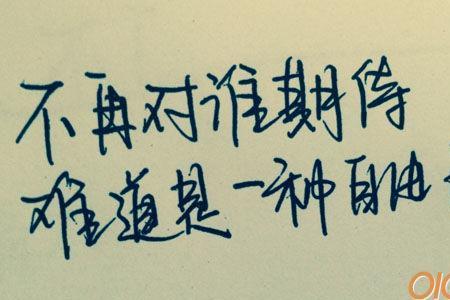 不再对谁期待
难道是一种自由